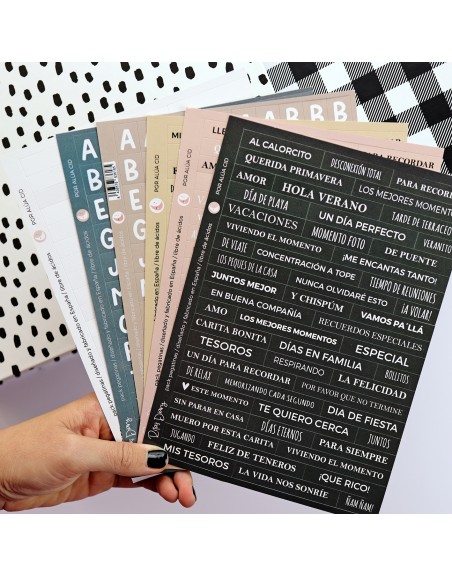 AL CALORCITO DESCONEXIÓN TOTAL PARA RECORDAR
QUERIDA PRIMAVERA LOS MEJORES MOMENTOS
AMOR HOLA VERANO TARDE DE TERRACEO
DÍA DE PLAYA UN DÍA PERFECTO VERANITO
VACACIONES MOMENTO FOTO DE PUENTE
VIVIENDO EL MOMENTO ¡ME ENCANTAS TANTO!
DE VIAJE CONCENTRACIÓN A TOPE TIEMPO DE REUNIONES
LOS PEQUES DE LA CASA NUNCA OLVIDARÉ ESTO ¡A VOLAR!
JUNTOS MEJOR Y CHISPÚM VAMOS PA´LLÁ
EN BUENA COMPAÑÍA RECUERDOS ESPECIALES
AMO LOS MEJORES MOMENTOS ESPECIAL
CARITA BONITA DÍAS EN FAMILIA BOLLITOS
TESOROS RESPIRANDO LA FELICIDAD
UN DÍA PARA RECORDAR POR FAVOR QUE NO TERMINE
DE RELAX MEMORIZANDO CADA SEGUNDO DIA DE FIESTA
ESTE MOMENTO TE QUIERO CERCA JUNTOS
SIN PARAR EN CASA DÍAS ETERNOS PARA SIEMPRE
MUERO POR ESTA CARITA VIVIENDO EL MOMENTO
JUGANDO FELIZ DE TENEROS ¡QUE RICO!
MIS TESOROS LA VIDA NOS SONRÍE ÑAM ÑAM!
POR ALÚA CID
pack pegatinas / diseñado y fabricado en España / libre de ácidos
POR ALÚA CID
en España / libre de ácidos
POR ALÚA CID
POR ALÚA CID
POR ALÚA CID
pack pegatinas / diseñado y fabricado en España / libre de ácidos
RECORDAR
A
B
E
G
J
N
A
B
B
B